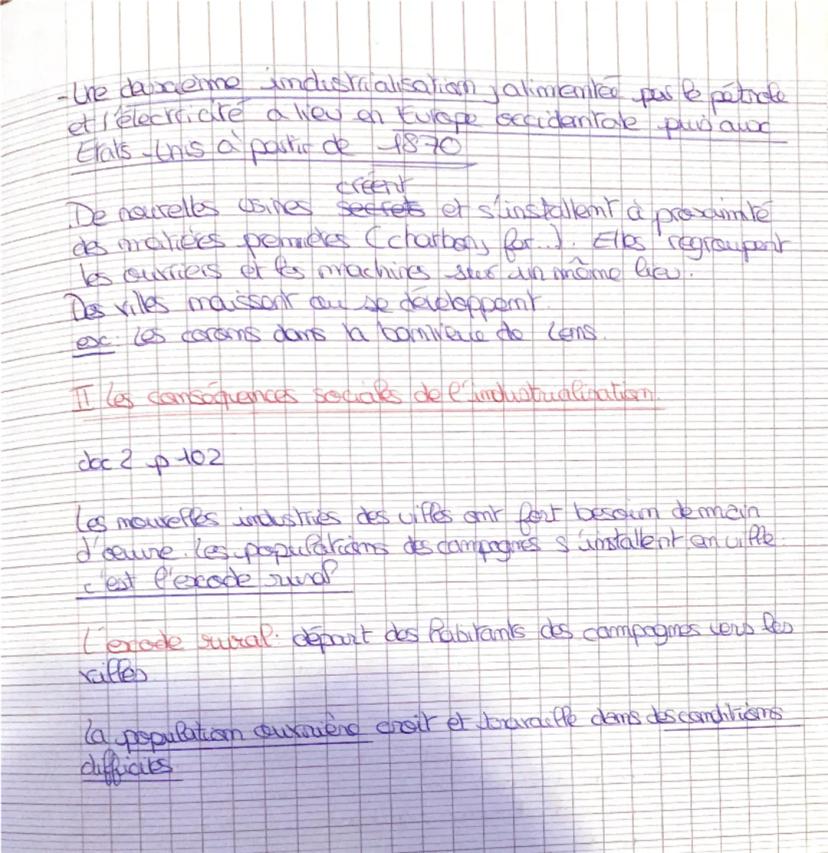 - Une deuxième industrialisation, alimentée par le pétrole
et l'électricité a lieu en Europe occidentale puis aux
États-Unis à partir de 1870
créent
De nouvelles usines et s'installent à proximité
des matières premières (charbon, fer...). Elles regroupent
les ouvriers et les machines sur un même lieu.
Des villes naissent ou se développent.
ex: les corons dans la banlieue de Lens.
II Les conséquences sociales de l'industrialisation.
doc 2 p 102
Les nouvelles industries des villes ont fort besoin de main
d'œuvre. Les populations des campagnes s'installent en ville.
c'est l'exode rural
L'exode rural: départ des habitants des campagnes vers les
villes
La population ouvrière croit et travaille dans des conditions
difficiles